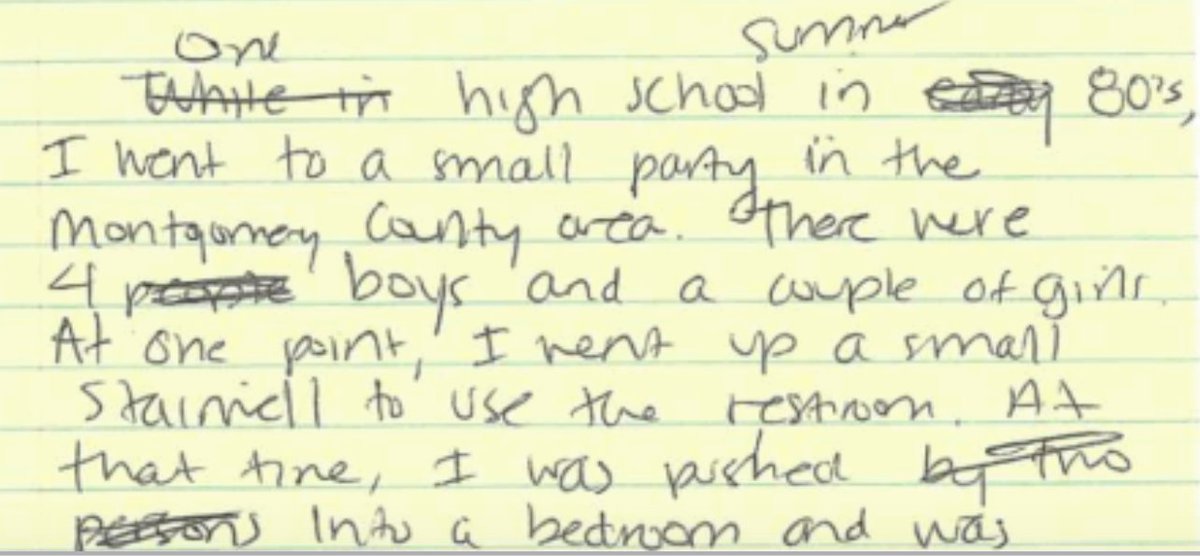 One summer
While in high school in early 80's,
I went to a small party in the
Montgomery County area. There were
4 people boys and a couple of girls.
At one point, I went up a small
stairwell to use the restroom. At
that time, I was pushed by two
persons into a bedroom and was